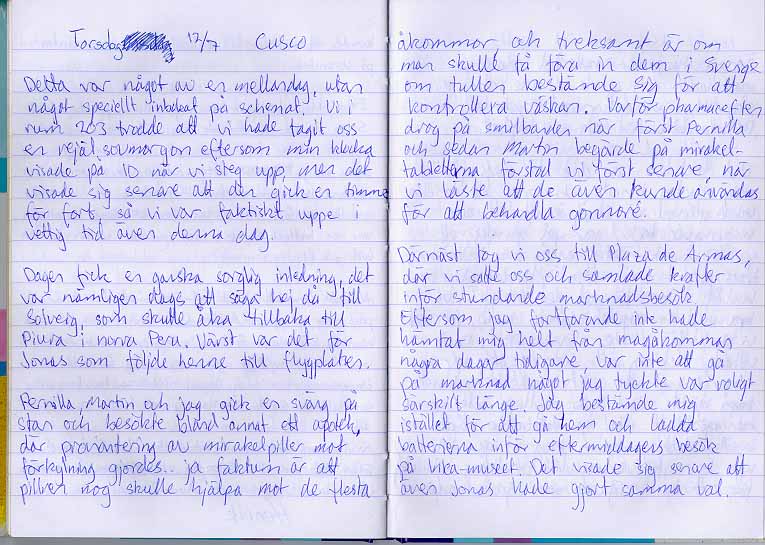 Torsdag 12/7 CUSCO
Detta var något av en mellandag, utan
något speciellt inbokat på schemat. Vi i
rum 203 trodde att vi hade tagit oss
en rejäl sovmorgon eftersom min klocka
visade på 10 när vi steg upp, men det
visade sig senare att den gick en timme
för fort, så vi var faktiskt uppe i
vettig tid även denna dag.
Dagen fick en ganska sorglig inledning, det
var nämligen dags att säga hej då till
Solveig, som skulle åka tillbaka till
Piura i norra Peru. Värst var det för
Jonas som följde henne till flygplatsen.
Pernilla, Martin och jag gick en sväng på
stan och besökte bland annat ett apotek,
där proviantering av mirakelpiller mot
förkylning gjordes.. ja faktum är att
pillren nog skulle hjälpa mot de flesta
åkommor, och treksamt är om
man skulle få föra in dem i Sverige
om tullen bestände sig för att
kontrollera väskan. Varför pharmaceften
drog på smilbanden när först Pernilla
och sedan Martin begärde på mirakel-
tabletterna förstod vi först senare, när
vi läste att de även kunde användas
för att behandla gonnoré.
Därnäst tog vi oss till Plaza de Armas,
där vi satte oss och samlade krafter
inför stundande marknadsbesök
Eftersom jag fortfarande inte hade
hämtat mig helt från magåkomman
några dagar tidigare, var inte att gå
på marknad något jag tyckte var roligt
särskilt länge. Jag bestämde mig
istället för att gå hem och ladda
batterierna inför eftermiddagens besök
på Inka-museet. Det visade sig senare att
även Jonas hade gjort samma val.